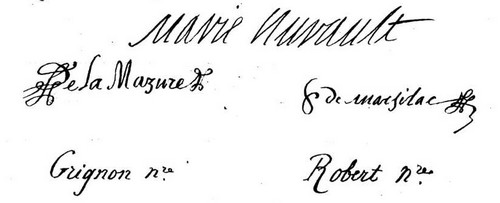 Marie Nuvault
De la Mazure
de marsilac
Grignon nre.
Robert nre